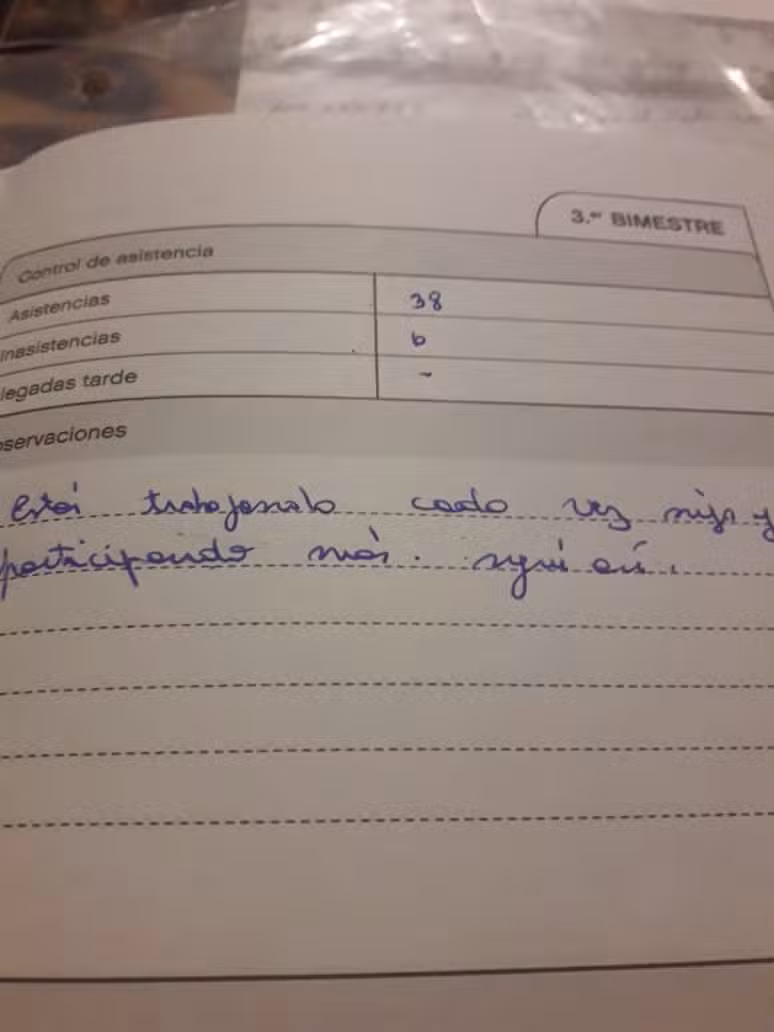 3.er BIMESTRE
Control de asistencia
Asistencias 38
Inasistencias 6
legadas tarde -
servaciones
Está trabajando cada vez mejor y
participando más. seguí así.